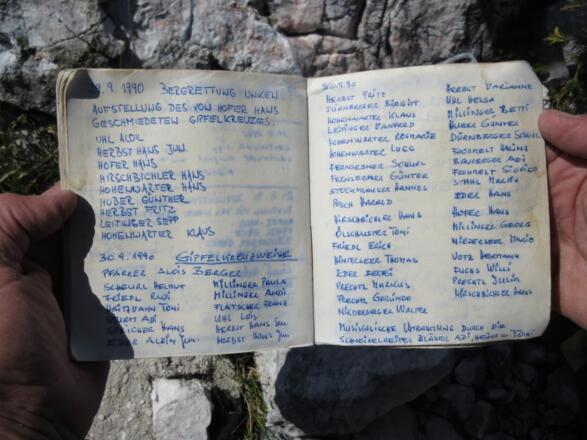 29.9.1990 BERGRETTUNG UNKEN
AUFSTELLUNG DES VON HOFER HANS
GESCHMIEDETEN GIPFELKREUZES
UHL ALDIL
HERBST HANS JUN.
HOFER HANS
HIRSCHBICHLER HANS
HOHENWARTER HANS
HUBER GÜNTHER
HERBST FRITZ
LEITINGER SEPP
HOHENWARTER KLAUS
30.9.1990 GIPFELKREUZWEIHE
PFARRER ALOIS BERGER
SCHEURL HELMUT MILLINGER PAULA
FRIEDL RUDI MILLINGER ANDI
HAITZMANN TONI FLATSCHER FRANZ
STURM ADI UHL LOIS
SPEICHER HANS HERBST HANS SEN.
EDER ALBIN JUN. HERBST HANS JUN.
30.9.90
HERBST FRITZ HERBST MARIANNE
DÜRNBERGER BIRGIT UHL HELGA
HOHENWARTER KLAUS MILLINGER BETTI
LEITINGER MANFRED HUBER GÜNTER
HOHENWARTER ROSMARIE DÜRNBERGER
HOHENWARTER LUGG FROHNELT HEINZ
FERNSEBNER SCHURL BAUREGGER ADI
FERNSEBNER GÜNTER FROHNELT
STOCKKLAUSER HANNES STAHL MARIA
POSCH HARALD EDER HANS
HIRSCHBICHLER HANS HOFER HANS
ÖLSCHUSTER TONI MILLINGER GEORG
FRIEDL ERICH NIEDERSEER MARIO
HINTERSEER THOMAS VOTZ HERMANN
EDER FUCHS WILLI
PRECHTL MARKUS PRECHTL JULIA
PRECHTL GERLINDE HIRSCHBICHLER HANS
NIEDERBERGER WALTER
MUSIKALISCHE UMRAHMUNG DURCH DIE
BLÄSER ADI, TONI